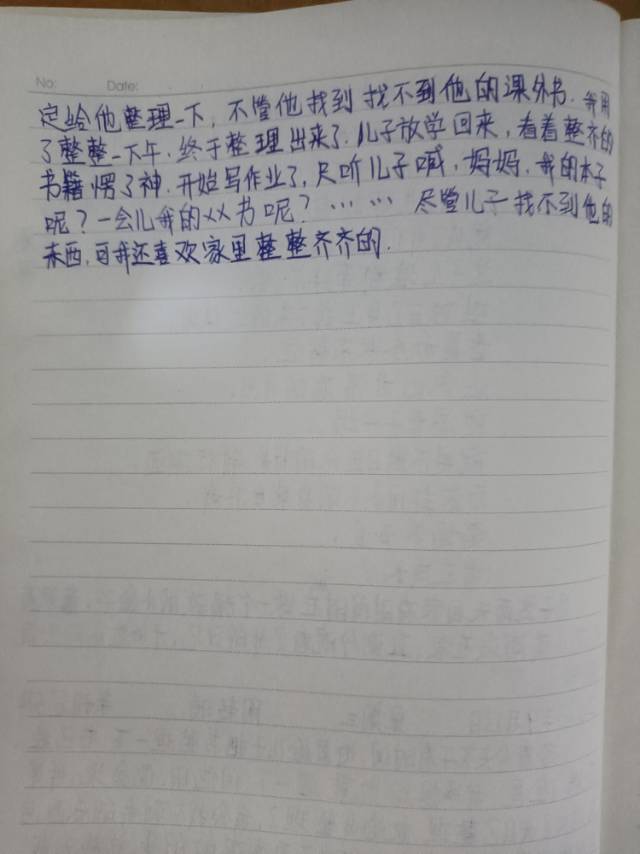 No:    Date:
定给他整理一下,不管他找到找不到他的课外书.我用
了整整一下午,终于整理出来了.儿子放学回来,看着整齐的
书籍愣了神.开始写作业了,只听儿子喊,妈妈,我的本子
呢?一会儿我的××书呢?…… 尽管儿子找不到他的
东西,可我还喜欢家里整整齐齐的.